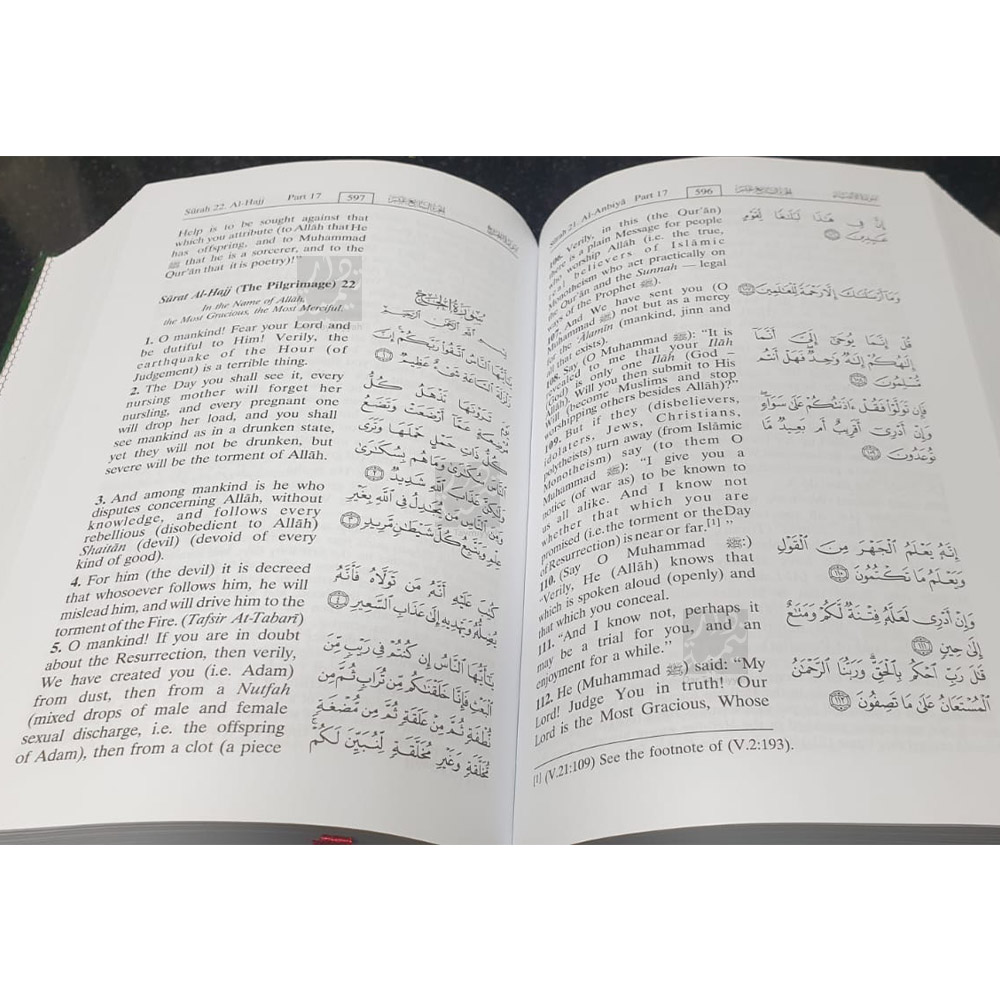 Sûrah 21. Al-Anbiyâ Part 17 596 الجزء السابع عشر
106. Verily, in this (the Qur'ân)
there is a plain Message for people
who worship Allâh (i.e. the true,
real believers of Islâmic
Monotheism who act practically on
the Qur'ân and the Sunnah — legal
ways of the Prophet ﷺ).
107. And We have sent you (O
Muhammad ﷺ) not but as a mercy
for the 'Âlamîn (mankind, jinn and
all that exists).
108. Say (O Muhammad ﷺ): "It is
revealed to me that your Ilâh
(God) is only one Ilâh (God –
Allâh). Will you then submit to His
Will (become Muslims and stop
worshipping others besides Allâh)?"
109. But if they (disbelievers,
idolaters, Jews, Christians,
polytheists) turn away (from Islâmic
Monotheism) say (to them O
Muhammad ﷺ): "I give you a
notice (of war as) to be known to
us all alike. And I know not
whether that which you are
promised (i.e. the torment or the Day
of Resurrection) is near or far.[1] "
110. (Say O Muhammad ﷺ:)
"Verily, He (Allâh) knows that
which is spoken aloud (openly) and
that which you conceal.
111. "And I know not, perhaps it
may be a trial for you, and an
enjoyment for a while."
112. He (Muhammad ﷺ) said: "My
Lord! Judge You in truth! Our
Lord is the Most Gracious, Whose
إِنَّ فِي هَٰذَا لَبَلَٰغًا لِّقَوْمٍ
عَٰبِدِينَ ١٠٦
وَمَآ أَرْسَلْنَٰكَ إِلَّا رَحْمَةً لِّلْعَٰلَمِينَ ١٠٧
قُلْ إِنَّمَا يُوحَىٰٓ إِلَيَّ أَنَّمَآ
إِلَٰهُكُمْ إِلَٰهٌ وَٰحِدٌ فَهَلْ أَنتُم
مُّسْلِمُونَ ١٠٨
فَإِن تَوَلَّوْا۟ فَقُلْ ءَاذَنتُكُمْ عَلَىٰ سَوَآءٍ
وَإِنْ أَدْرِىٓ أَقَرِيبٌ أَم بَعِيدٌ مَّا
تُوعَدُونَ ١٠٩
إِنَّهُۥ يَعْلَمُ ٱلْجَهْرَ مِنَ ٱلْقَوْلِ
وَيَعْلَمُ مَا تَكْتُمُونَ ١١٠
وَإِنْ أَدْرِى لَعَلَّهُۥ فِتْنَةٌ لَّكُمْ وَمَتَٰعٌ
إِلَىٰ حِينٍ ١١١
قَٰلَ رَبِّ ٱحْكُم بِٱلْحَقِّ وَرَبُّنَا ٱلرَّحْمَٰنُ
ٱلْمُسْتَعَانُ عَلَىٰ مَا تَصِفُونَ ١١٢
[1] (V.21:109) See the footnote of (V.2:193).
Sûrah 22. Al-Hajj Part 17 597 الجزء السابع عشر
Help is to be sought against that
which you attribute (to Allâh that He
has offspring, and to Muhammad
ﷺ that he is a sorcerer, and to the
Qur'ân that it is poetry)!"
Sûrat Al-Hajj (The Pilgrimage) 22
In the Name of Allâh,
the Most Gracious, the Most Merciful.
1. O mankind! Fear your Lord and
be dutiful to Him! Verily, the
earthquake of the Hour (of
Judgement) is a terrible thing.
2. The Day you shall see it, every
nursing mother will forget her
nursling, and every pregnant one
will drop her load, and you shall
see mankind as in a drunken state,
yet they will not be drunken, but
severe will be the torment of Allâh.
3. And among mankind is he who
disputes concerning Allâh, without
knowledge, and follows every
rebellious (disobedient to Allâh)
Shaitân (devil) (devoid of every
kind of good).
4. For him (the devil) it is decreed
that whosoever follows him, he will
mislead him, and will drive him to the
torment of the Fire. (Tafsir At-Tabarî)
5. O mankind! If you are in doubt
about the Resurrection, then verily,
We have created you (i.e. Adam)
from dust, then from a Nutfah
(mixed drops of male and female
sexual discharge, i.e. the offspring
of Adam), then from a clot (a piece
سُورَةُ الحَجِّ
بِسْمِ ٱللَّهِ ٱلرَّحْمَٰنِ ٱلرَّحِيمِ
يَٰٓأَيُّهَا ٱلنَّاسُ ٱتَّقُوا۟ رَبَّكُمْ إِنَّ
زَلْزَلَةَ ٱلسَّاعَةِ شَىْءٌ عَظِيمٌ ١
يَوْمَ تَرَوْنَهَا تَذْهَلُ كُلُّ
مُرْضِعَةٍ عَمَّآ أَرْضَعَتْ وَتَضَعُ
كُلُّ ذَاتِ حَمْلٍ حَمْلَهَا وَتَرَى
ٱلنَّاسَ سُكَٰرَىٰ وَمَا هُم بِسُكَٰرَىٰ
وَلَٰكِنَّ عَذَابَ ٱللَّهِ شَدِيدٌ ٢
وَمِنَ ٱلنَّاسِ مَن يُجَٰدِلُ فِى ٱللَّهِ بِغَيْرِ
عِلْمٍ وَيَتَّبِعُ كُلَّ شَيْطَٰنٍ مَّرِيدٍ ٣
كُتِبَ عَلَيْهِ أَنَّهُۥ مَن تَوَلَّاهُ فَأَنَّهُۥ
يُضِلُّهُۥ وَيَهْدِيهِ إِلَىٰ عَذَابِ ٱلسَّعِيرِ ٤
يَٰٓأَيُّهَا ٱلنَّاسُ إِن كُنتُمْ فِى رَيْبٍ مِّنَ
ٱلْبَعْثِ فَإِنَّا خَلَقْنَٰكُم مِّن تُرَابٍ ثُمَّ مِن
نُّطْفَةٍ ثُمَّ مِنْ عَلَقَةٍ ثُمَّ مِن مُّضْغَةٍ
مُّخَلَّقَةٍ وَغَيْرِ مُخَلَّقَةٍ لِّنُبَيِّنَ لَكُمْ